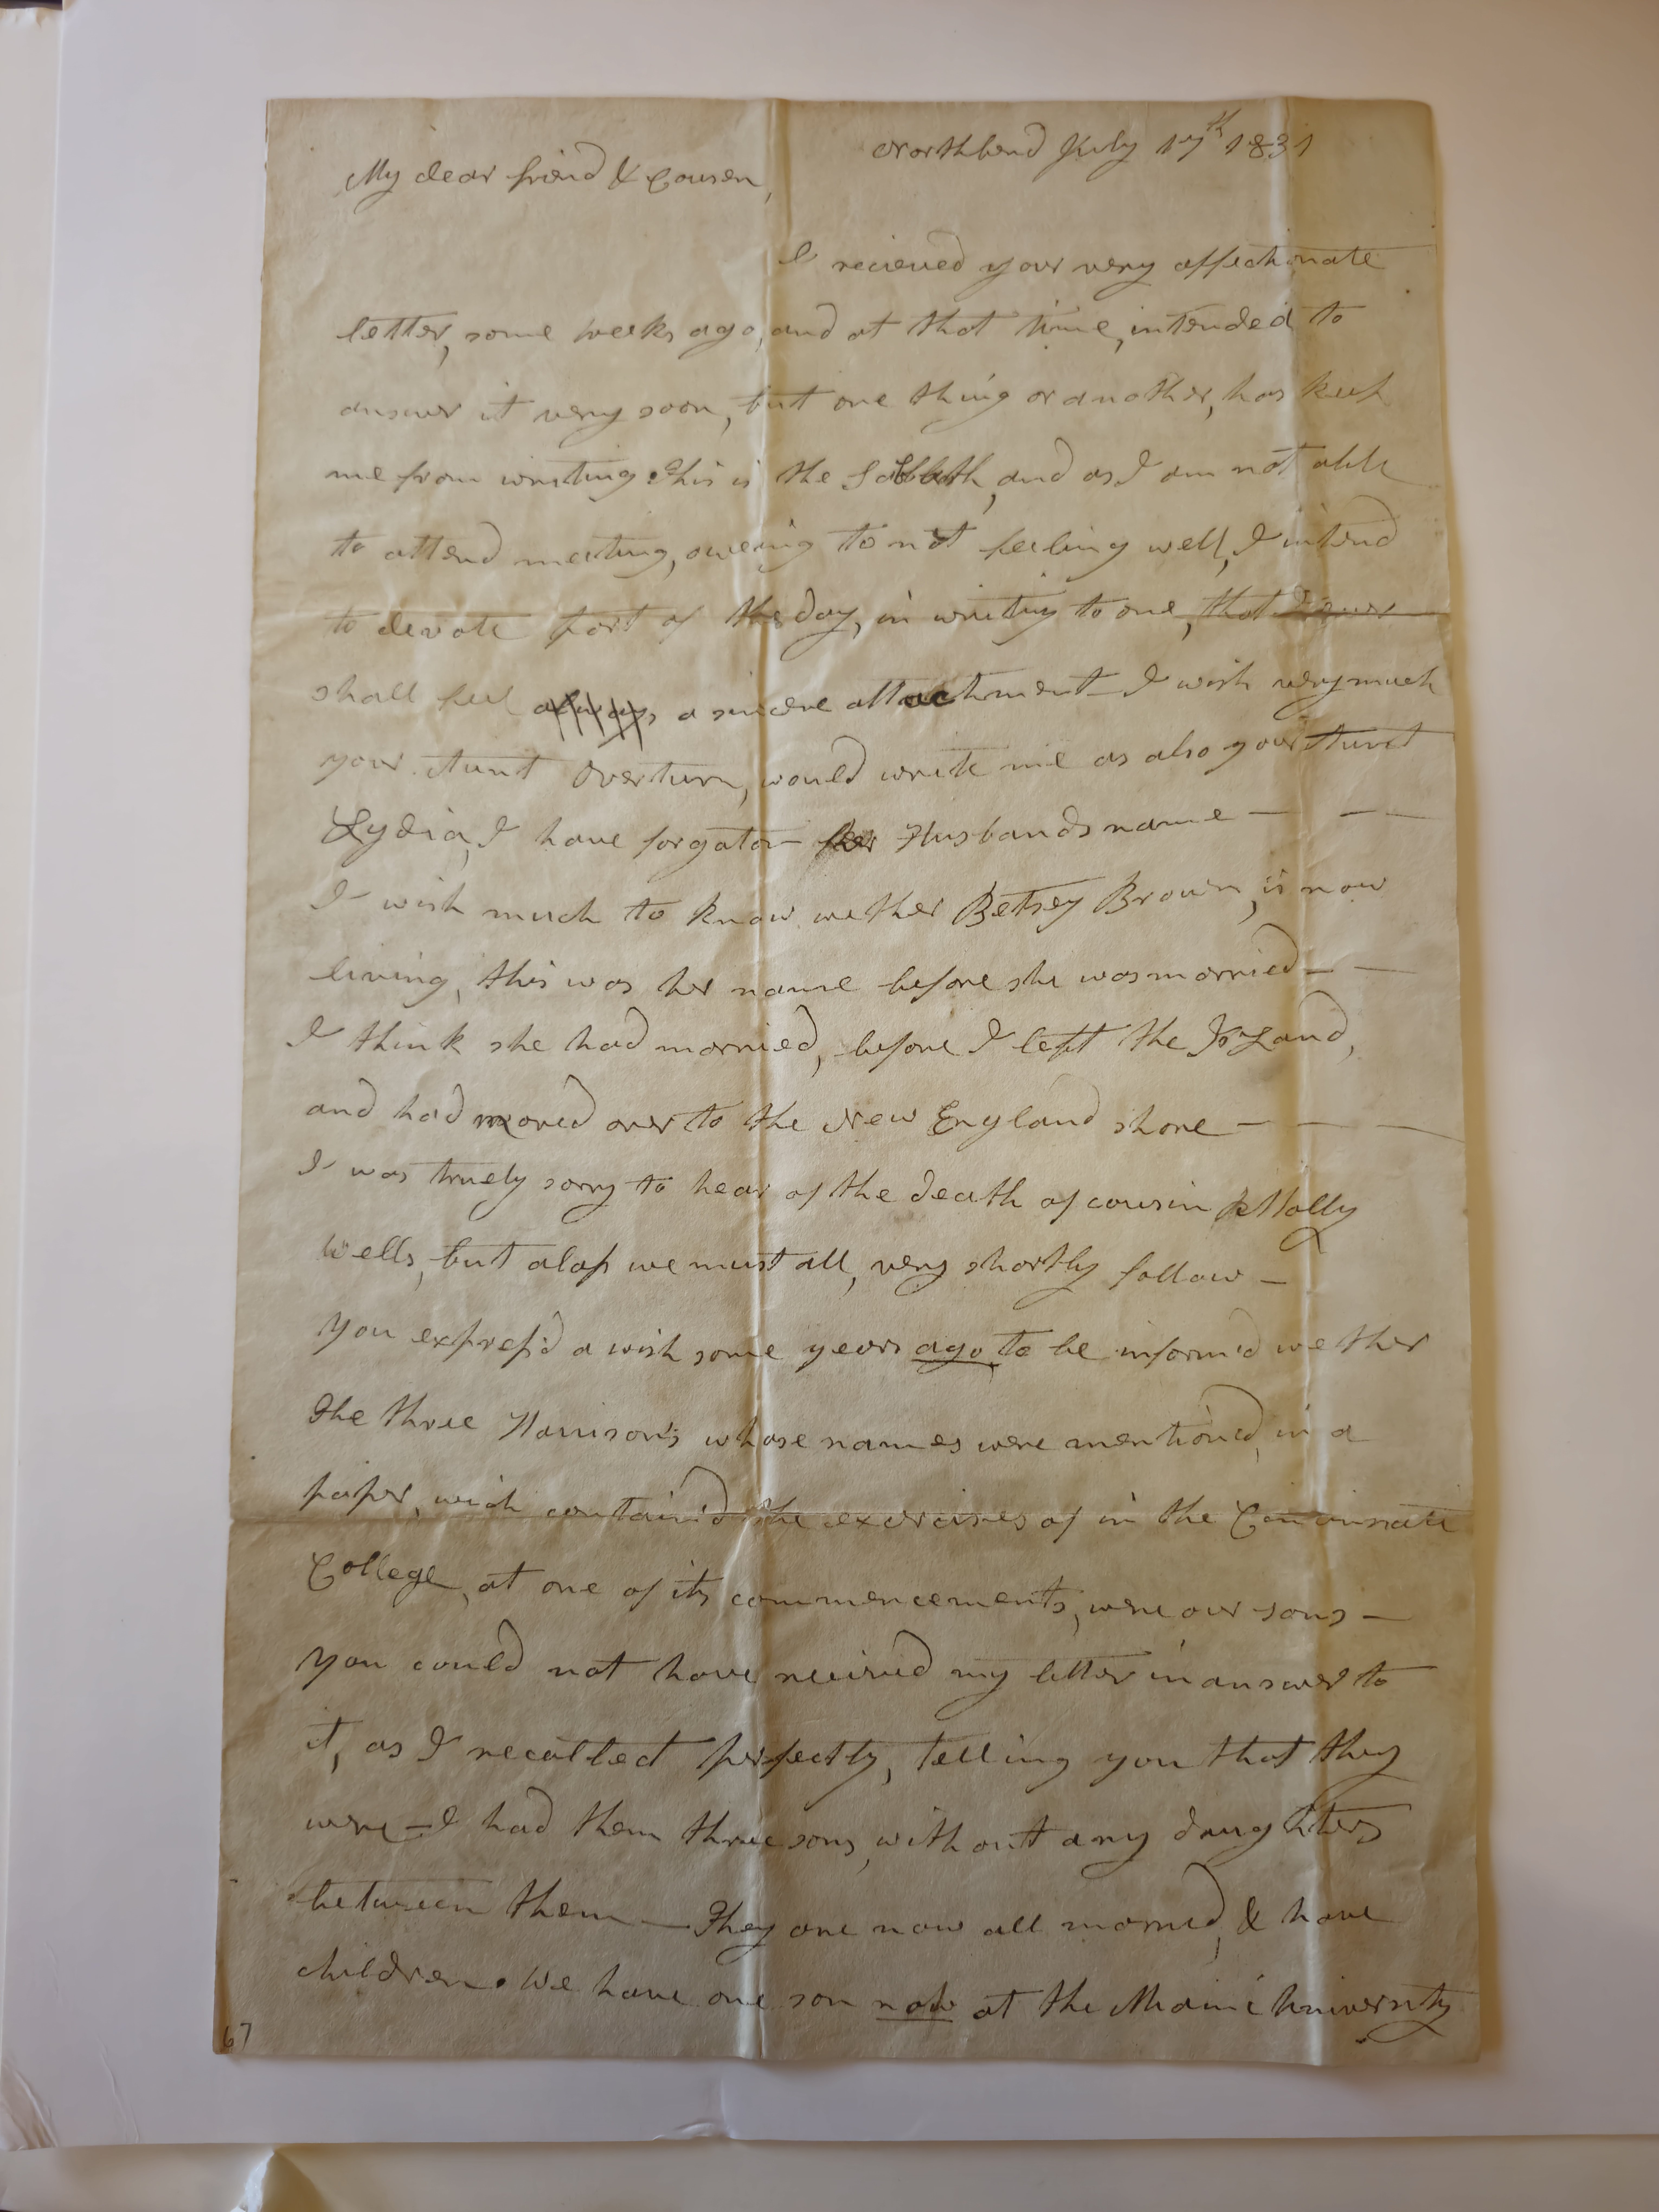 Northbend July 17th 1831
My dear friend & Cousen,
I recieved your very affectionate
letter, some weeks ago, and at that time, intended to
answer it very soon, but one thing or another, has kept
me from writing. This is the Sabbath, and as I am not able
to attend meeting, oweing to not feeling well, I intend
to devote part of the day, in writing to one, that I ever
shall feel always, a sincere attachment – I wish very much
your Aunt Overturn, would write me as also your Aunt
Lydia, I have forgoton her Husbands name — — —
I wish much to know wether Betsey Brown, is now
living, this was her name before she was married — —
I think she had married, before I left the Island,
and had moved over to the New England shore — — —
I was truely sorry to hear of the death of cousin Molly
Wells, but alass we must all, very shortly follow —
You express'd a wish some years ago, to be inform'd wether
the three Harrison's whose names were mention'd, in a
paper, wich contain'd the exercises of in the Cincinnati
College, at one of its commencements, were our sons —
You could not have recieved my letter in answer to
it, as I recollect perfectly, telling you that they
were – I had them three sons, without any daughters
between them — They are now all married, & have
children. We have one son now at the Miami University
67